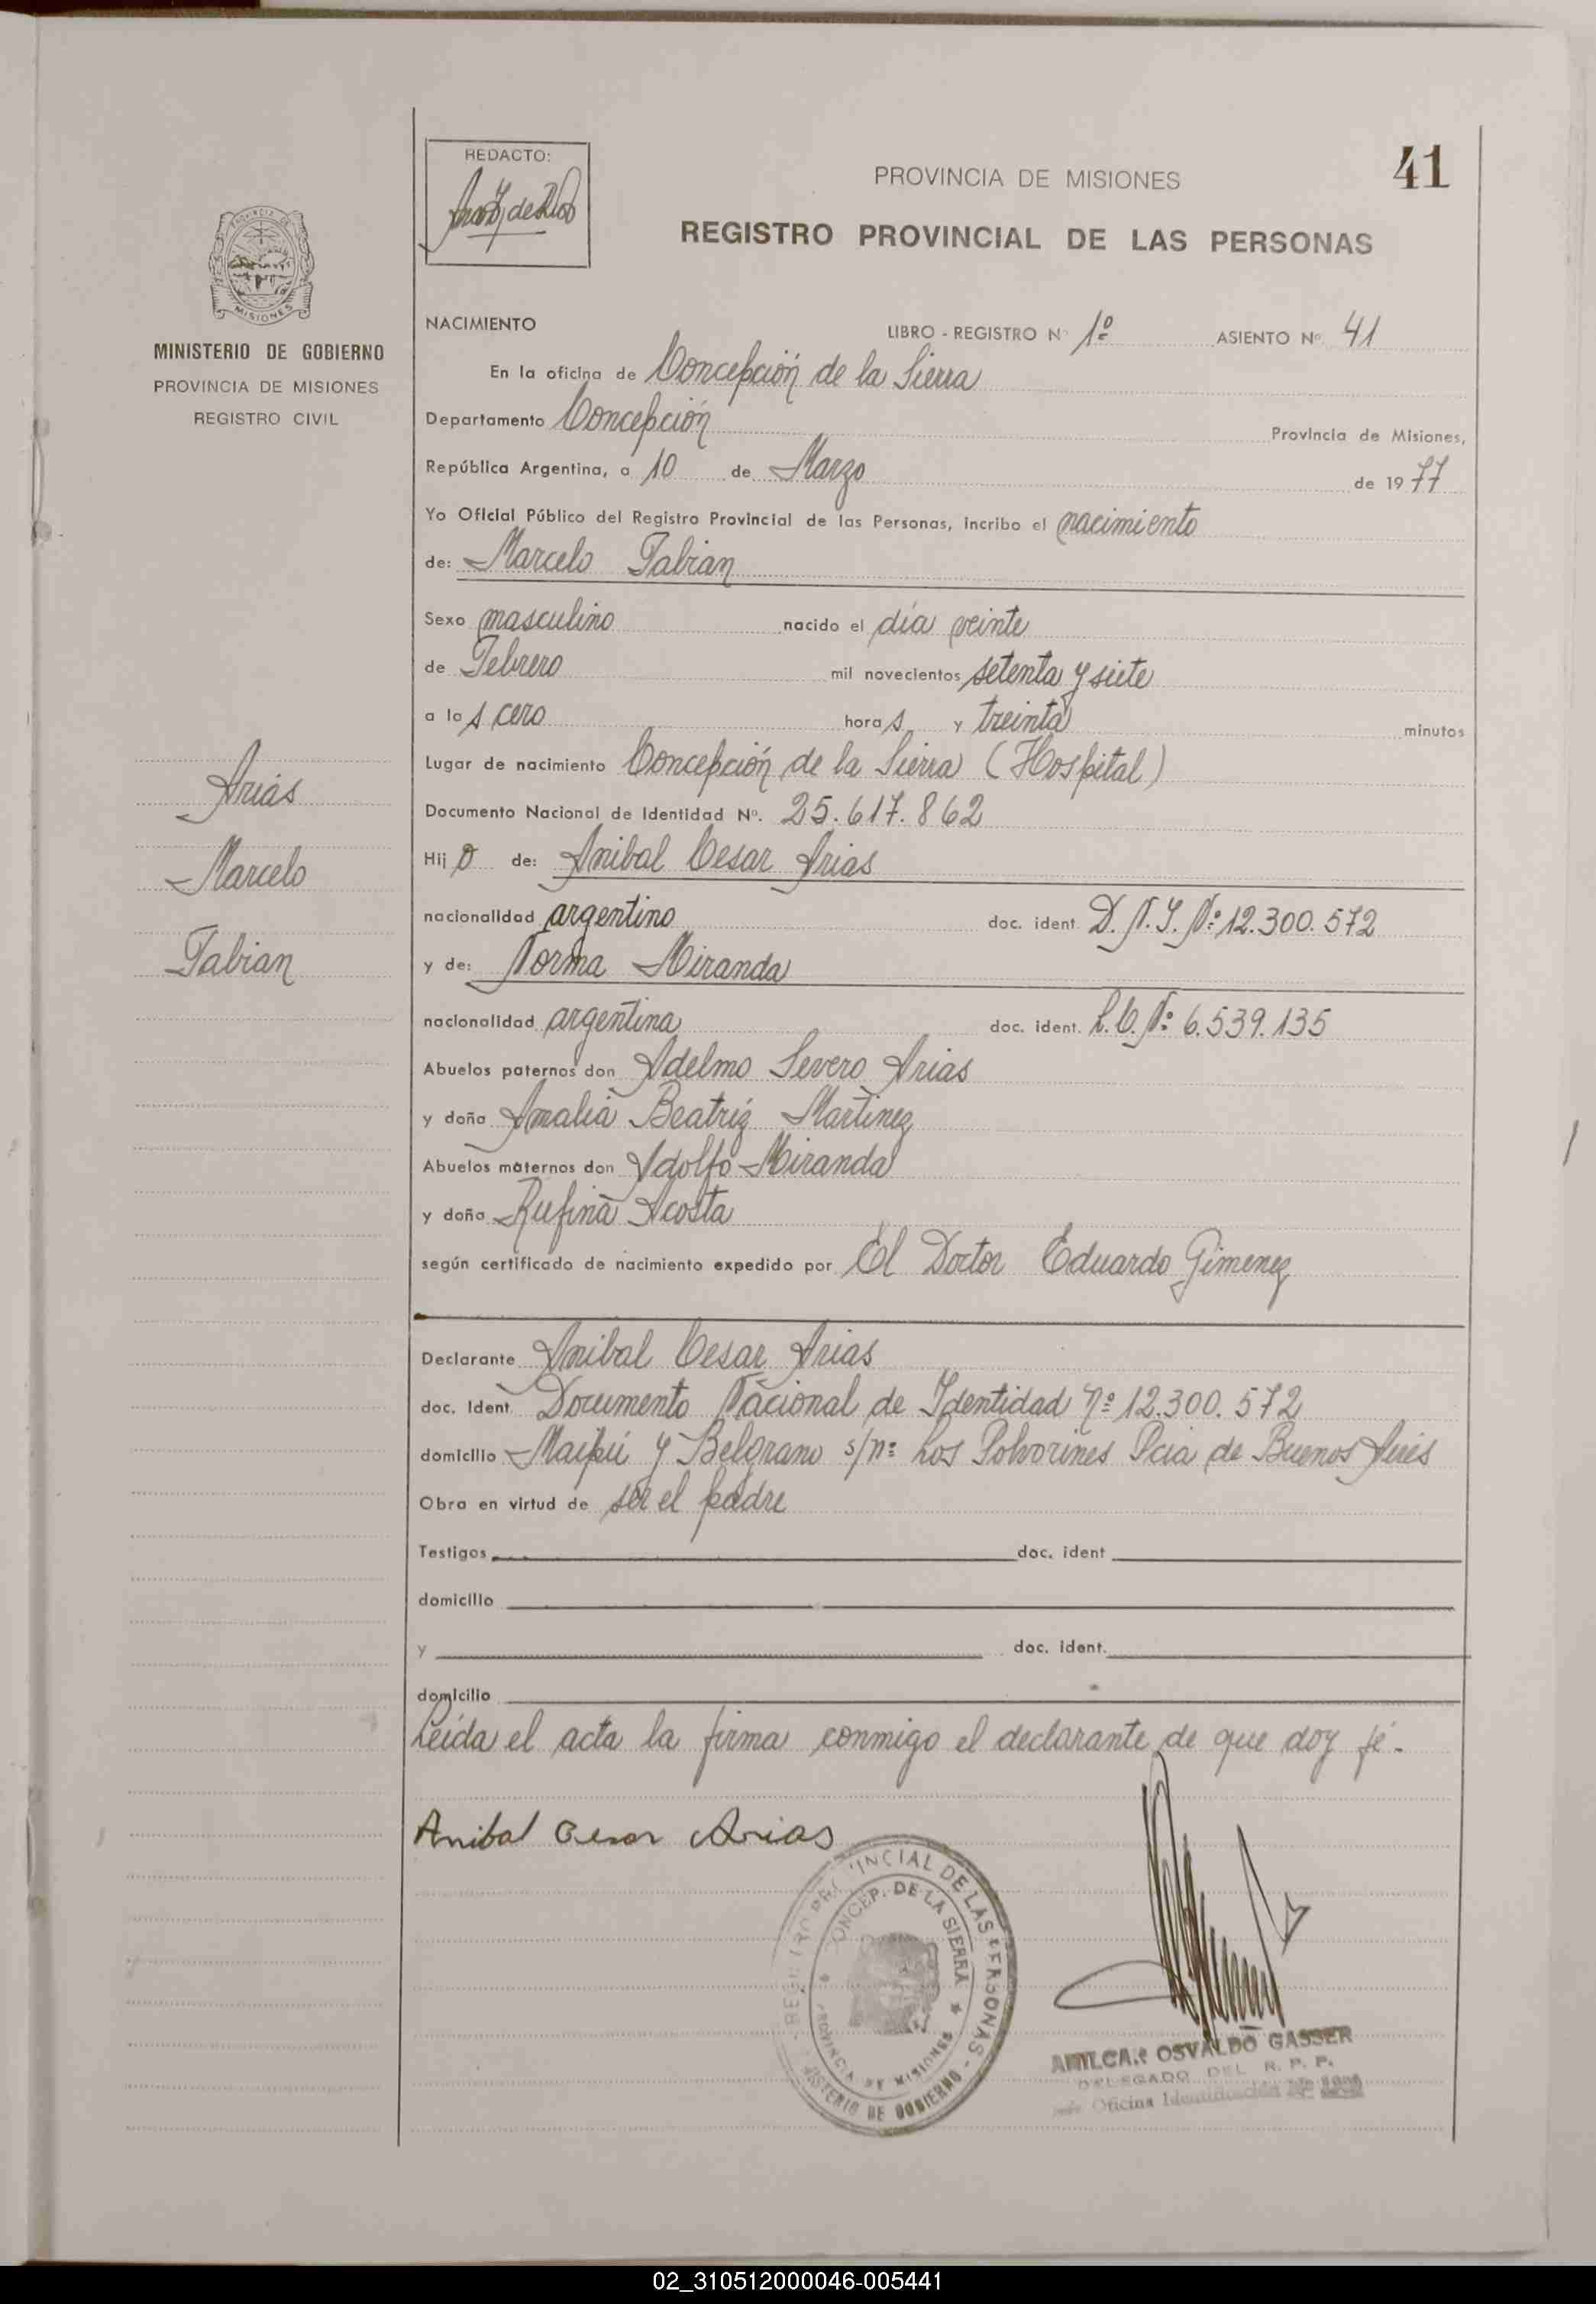 41
REDACTO:
PROVINCIA DE MISIONES
REGISTRO PROVINCIAL DE LAS PERSONAS
MISIONES
MINISTERIO DE GOBIERNO
PROVINCIA DE MISIONES
REGISTRO CIVIL
Arias
Marcelo
Fabian
NACIMIENTO LIBRO - REGISTRO Nº 1º ASIENTO Nº 41
En la oficina de Concepción de la Sierra
Departamento Concepción Provincia de Misiones,
República Argentina, a 10 de Marzo de 1977
Yo Oficial Público del Registro Provincial de las Personas, incribo el nacimiento
de: Marcelo Fabian
Sexo masculino nacido el día veinte
de Febrero mil novecientos setenta y siete
a las cero horas y treinta minutos
Lugar de nacimiento Concepción de la Sierra (Hospital)
Documento Nacional de Identidad Nº. 25.617.862
Hijo de: Anibal Cesar Arias
nacionalidad argentino doc. ident. D.N.I. Nº 12.300.572
y de: Norma Miranda
nacionalidad argentina doc. ident. L.C. Nº 6.539.135
Abuelos paternos don Adelmo Severo Arias
y doña Amalia Beatriz Martinez
Abuelos maternos don Adolfo Miranda
y doña Rufina Acosta
según certificado de nacimiento expedido por El Doctor Eduardo Gimenez
Declarante Anibal Cesar Arias
doc. Ident. Documento Nacional de Identidad Nº 12.300.572
domicilio Maipú y Belgrano s/nº Los Polvorines Pcia de Buenos Aires
Obra en virtud de ser el padre
Testigos doc. ident
domicilio
y doc. ident.
domicilio
Leída el acta la firma conmigo el declarante de que doy fé.
Anibal Cesar Arias
CONCEP. DE LA SIERRA
PROVINCIA DE MISIONES
DE LAS PERSONAS -
DE GOBIERNO
AMILCAR OSVALDO GASSER
DELEGADO DEL R. P. P.
Oficina Identificación Nº
02_310512000046-005441